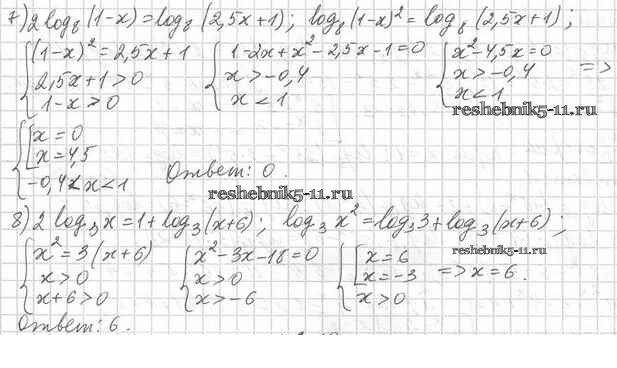 7) 2 log₈ (1-x) = log₈ (2,5x+1); log₈ (1-x)² = log₈ (2,5x+1);
{ (1-x)² = 2,5x+1 { 1-2x+x²-2,5x-1=0 { x²-4,5x=0
2,5x+1>0 x>-0,4 x>-0,4 =>
1-x>0 x<1 x<1
reshebnik5-11.ru
{ [ x=0
x=4,5
-0,4<x<1 Ответ: 0.
reshebnik5-11.ru
8) 2 log₃ x = 1+log₃ (x+6); log₃ x² = log₃ 3+log₃ (x+6);
reshebnik5-11.ru
{ x²=3(x+6) { x²-3x-18=0 { [ x=6
x>0 x>0 x=-3 => x=6.
x+6>0 x>-6 x>0
Ответ: 6.